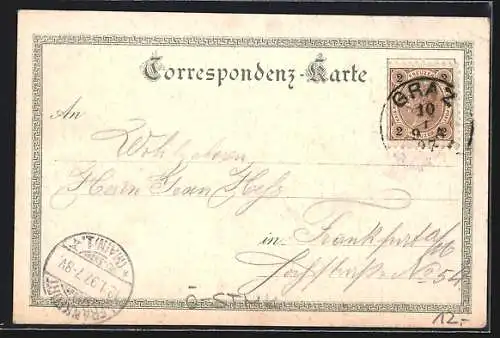 Correspondenz-Karte
2 KREUZER 2
2 2
GRAZ
10
1
97
An
Wohlgeboren
Herrn Jean
in Frankfurt a/M
No 54
FRANKFURT
(MAIN) 1.
12.1.97.7-8V
Ö-STMK
12.-